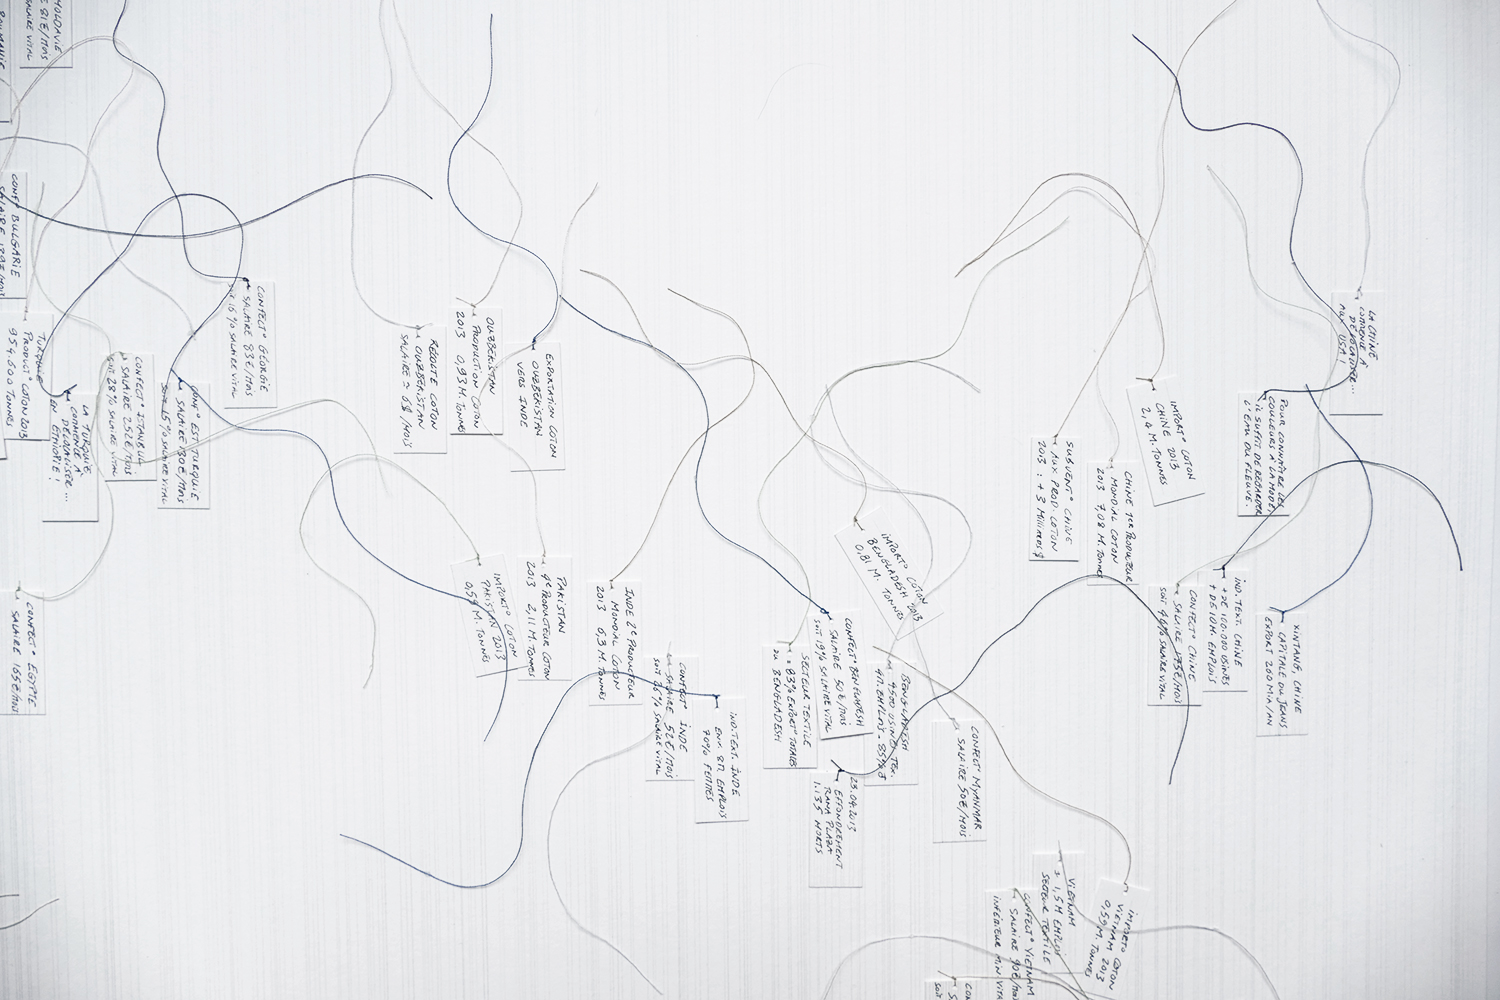 MOLDAVIE
SALAIRE VITAL
CONF° BULGARIE
TURQUIE
PRODUCT° COTON 2013
954.600 TONNES
LA TURQUIE
COMMENCE À
DÉLOCALISER...
EN ÉTHIOPIE!
CONFECT° ISTANBUL
SALAIRE 252€/MOIS
SOIT 28% SALAIRE VITAL
CONF° EST TURQUIE
SALAIRE 130€/MOIS
SOIT 15% SALAIRE VITAL
CONFECT° GÉORGIE
SALAIRE 83€/MOIS
SOIT 16% SALAIRE VITAL
CONFECT° EGYPTE
SALAIRE
RÉCOLTE COTON
OUZBÉKISTAN
SALAIRE = 0$/MOIS
OUZBÉKISTAN
PRODUCTION COTON
2013 0,93 M. TONNES
EXPORTATION COTON
OUZBÉKISTAN
VERS INDE
IMPORT° COTON
PAKISTAN 2013
M. TONNES
PAKISTAN
4e PRODUCTEUR COTON
2013 2,11 M. TONNES
INDE 2e PRODUCTEUR
MONDIAL COTON
2013 M. TONNES
CONFECT° INDE
SALAIRE 52€/MOIS
SALAIRE VITAL
IND. TEXT. INDE
ENV. 8M EMPLOIS
70% FEMMES
SECTEUR TEXTILE
= 83% EXPORT° TOTALES
DU BENGLADESH
CONFECT° BENGLADESH
SALAIRE 50€/MOIS
SOIT 19% SALAIRE VITAL
IMPORT° COTON
BENGLADESH 2013
0,81 M. TONNES
BENGLADESH
4500 USINES TEX.
4M. EMPLOIS
23.04.2013
EFFONDREMENT
RANA PLAZA
1.135 MORTS
CONFECT° MYANMAR
SALAIRE 50€/MOIS
VIETNAM
± 1,5M EMPLOI
SECTEUR TEXTILE
CONFECT° VIETNAM
SALAIRE 90€/MOIS
IMPORT° COTON
VIETNAM 2013
0,59 M. TONNES
SUBVENT° CHINE
AUX PROD. COTON
2013 : + 3 MILLIARDS $
CHINE 1er PRODUCTEUR
MONDIAL COTON
2013 7,08 M. TONNES
IMPORT° COTON
CHINE 2013
2,4 M. TONNES
CONFECT° CHINE
SALAIRE 175€/MOIS
SOIT 46% SALAIRE VITAL
IND. TEXT. CHINE
+ DE 100.000 USINES
+ DE 10M. EMPLOIS
XINTANG, CHINE
CAPITALE DU JEANS
EXPORT 200 MIA/AN
POUR CONNAÎTRE LES
COULEURS À LA MODE,
IL SUFFIT DE REGARDER
L'EAU DU FLEUVE.
LA CHINE
COMMENCE À
DÉLOCALISER...
AUX USA!